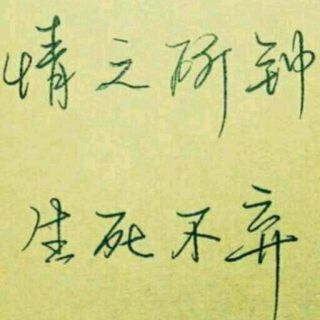 情之所钟
生死不弃